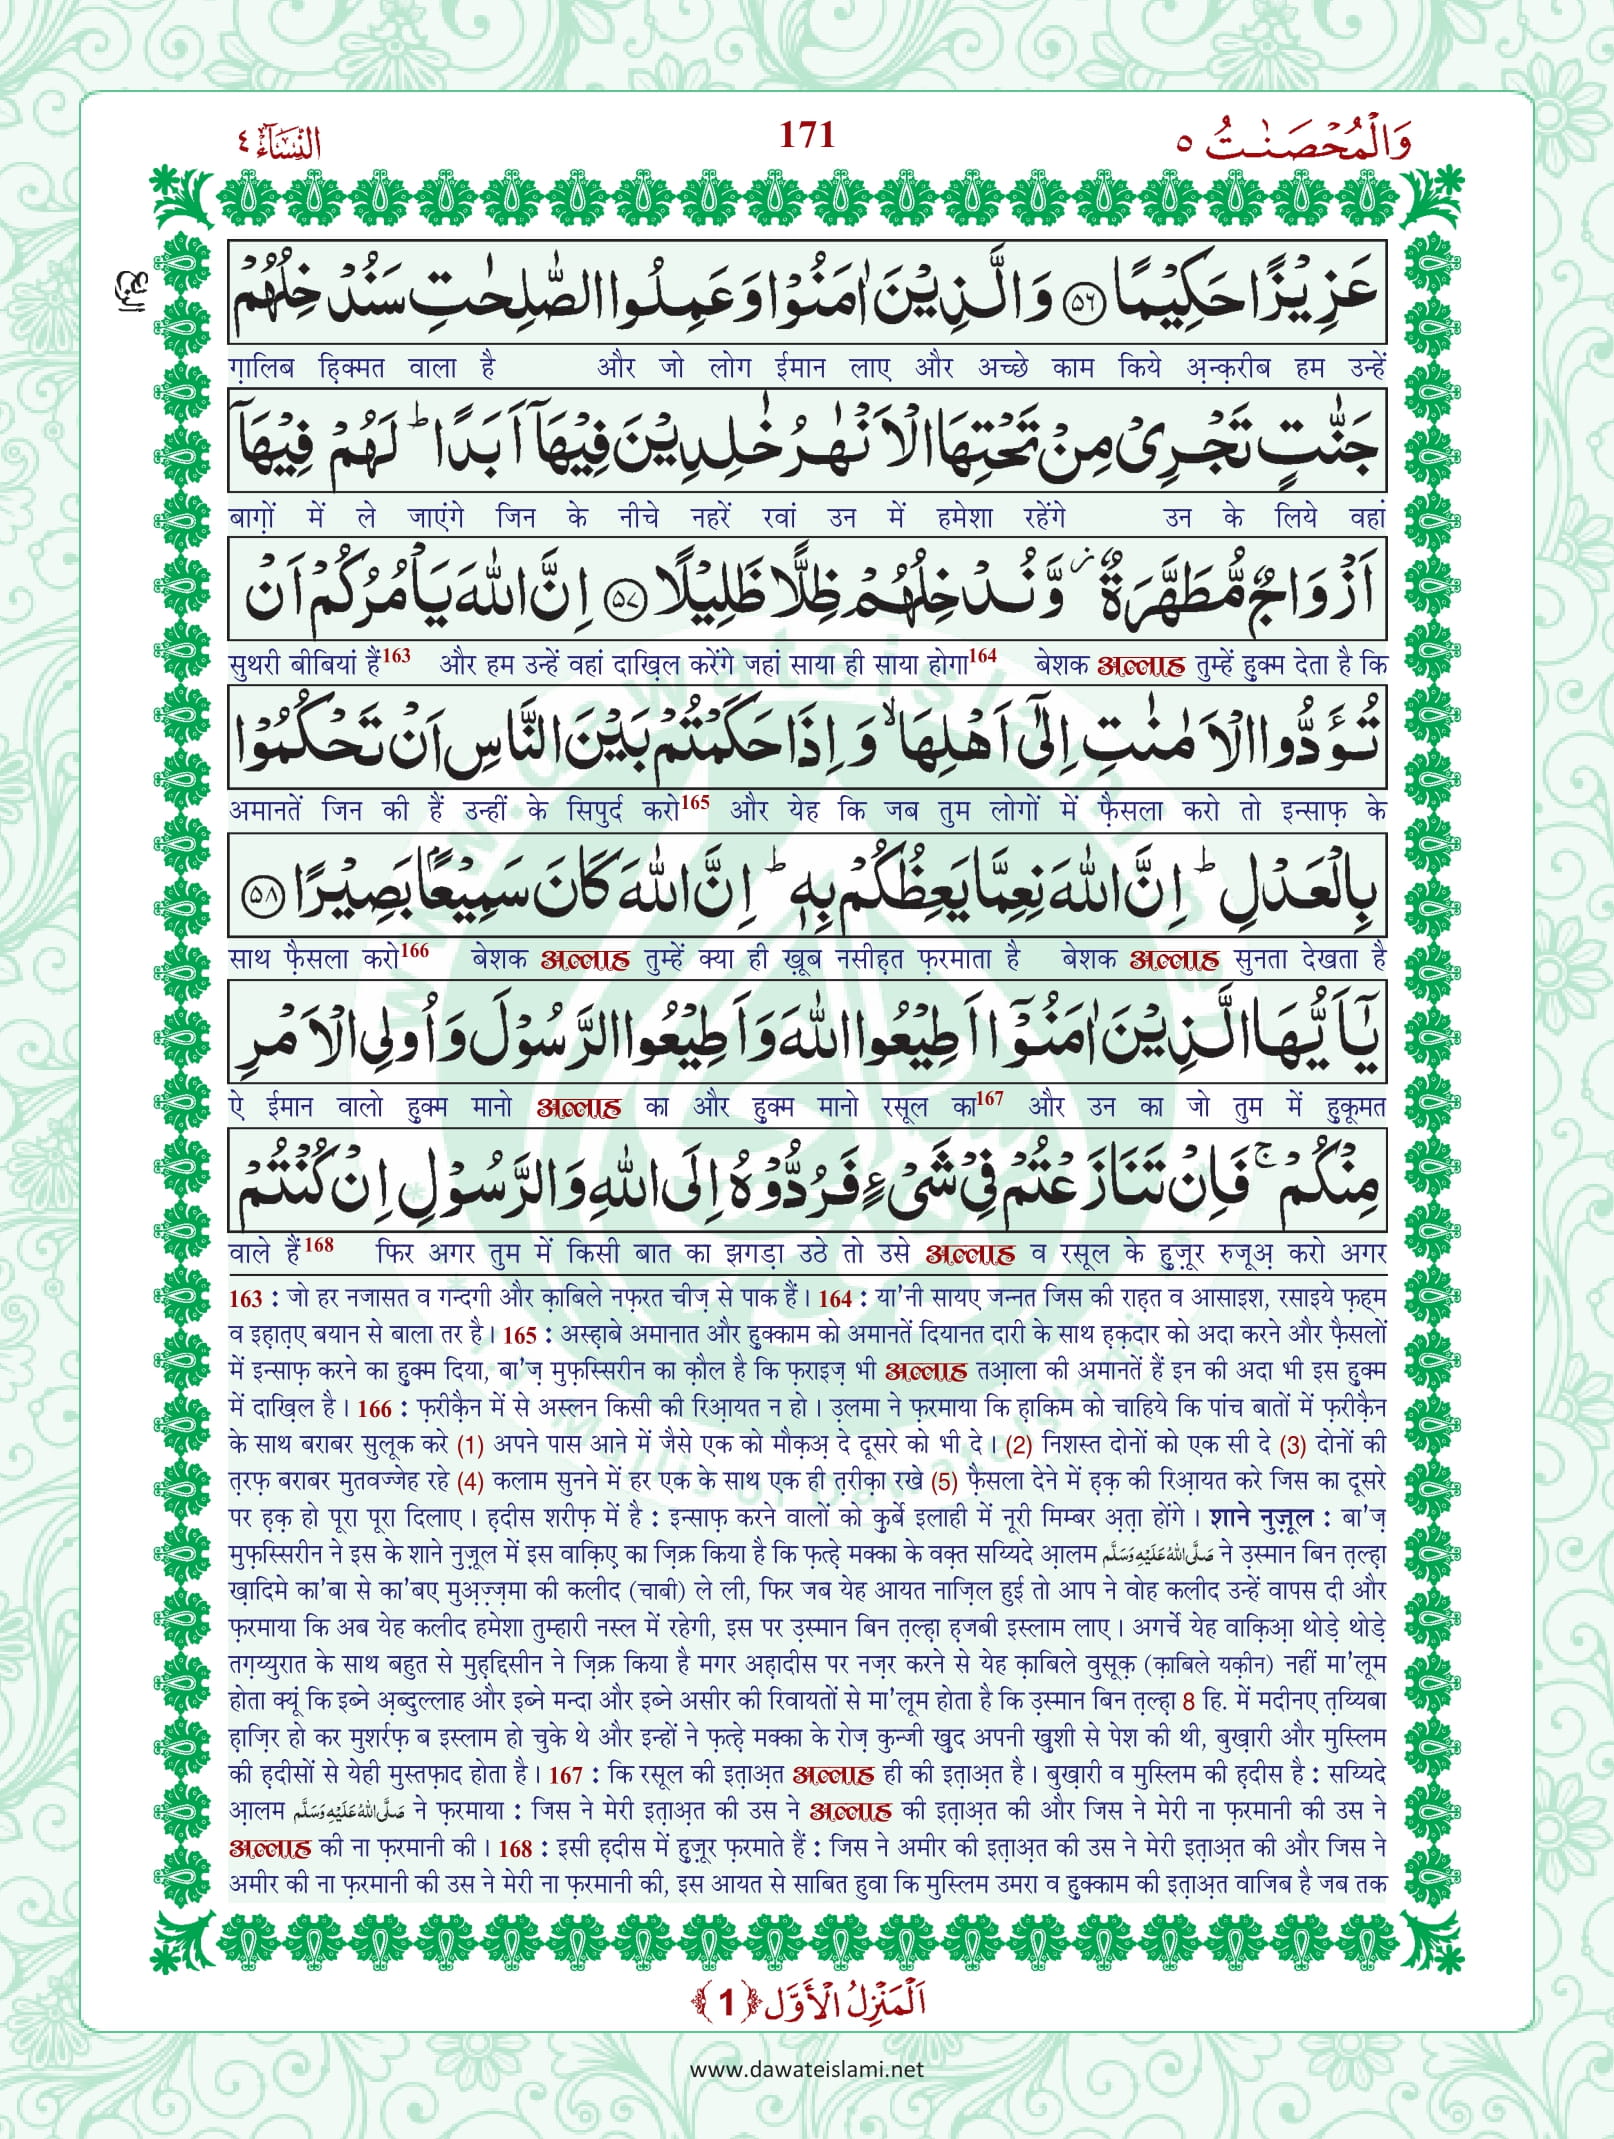 وَالْمُحْصَنٰتُ ٥
171
النِّسَآء ٤
الربع
عَزِيْزًا حَكِيْمًا ﴿۵۶﴾ وَالَّذِيْنَ اٰمَنُوْا وَعَمِلُوا الصّٰلِحٰتِ سَنُدْخِلُهُمْ
ग़ालिब ह़िक्मत वाला है और जो लोग ईमान लाए और अच्छे काम किये अ़न्क़रीब हम उन्हें
جَنّٰتٍ تَجْرِیْ مِنْ تَحْتِهَا الْاَنْهٰرُ خٰلِدِيْنَ فِيْهَاۤ اَبَدًا ؕ لَهُمْ فِيْهَاۤ
बाग़ों में ले जाएंगे जिन के नीचे नहरें रवां उन में हमेशा रहेंगे उन के लिये वहां
اَزْوَاجٌ مُّطَهَّرَةٌ ؗ وَّنُدْخِلُهُمْ ظِلًّا ظَلِيْلًا ﴿۵۷﴾ اِنَّ اللّٰهَ يَاْمُرُكُمْ اَنْ
सुथरी बीबियां हैं163 और हम उन्हें वहां दाख़िल करेंगे जहां साया ही साया होगा164 बेशक अल्लाह तुम्हें हुक्म देता है कि
تُؤَدُّوا الْاَمٰنٰتِ اِلٰۤى اَهْلِهَا ۙ وَاِذَا حَكَمْتُمْ بَيْنَ النَّاسِ اَنْ تَحْكُمُوْا
अमानतें जिन की हैं उन्हीं के सिपुर्द करो165 और येह कि जब तुम लोगों में फ़ैसला करो तो इन्साफ़ के
بِالْعَدْلِ ؕ اِنَّ اللّٰهَ نِعِمَّا يَعِظُكُمْ بِهٖ ؕ اِنَّ اللّٰهَ كَانَ سَمِيْعًۢا بَصِيْرًا ﴿۵۸﴾
साथ फ़ैसला करो166 बेशक अल्लाह तुम्हें क्या ही ख़ूब नसीह़त फ़रमाता है बेशक अल्लाह सुनता देखता है
يٰۤاَيُّهَا الَّذِيْنَ اٰمَنُوْۤا اَطِيْعُوا اللّٰهَ وَاَطِيْعُوا الرَّسُوْلَ وَاُولِی الْاَمْرِ
ऐ ईमान वालो हुक्म मानो अल्लाह का और हुक्म मानो रसूल का167 और उन का जो तुम में हुकूमत
مِنْكُمْ ۚ فَاِنْ تَنَازَعْتُمْ فِیْ شَیْءٍ فَرُدُّوْهُ اِلَى اللّٰهِ وَالرَّسُوْلِ اِنْ كُنْتُمْ
वाले हैं168 फिर अगर तुम में किसी बात का झगड़ा उठे तो उसे अल्लाह व रसूल के हुज़ूर रुजूअ़ करो अगर
163 : जो हर नजासत व गन्दगी और क़ाबिले नफ़रत चीज़ से पाक हैं। 164 : या'नी सायए जन्नत जिस की राह़त व आसाइश, रसाइये फ़ह्म
व इह़ात़ए बयान से बाला तर है। 165 : अस्ह़ाबे अमानात और हुक्काम को अमानतें दियानत दारी के साथ ह़क़दार को अदा करने और फ़ैसलों
में इन्साफ़ करने का हुक्म दिया, बा'ज़ मुफ़स्सिरीन का क़ौल है कि फ़राइज़ भी अल्लाह तआ़ला की अमानतें हैं इन की अदा भी इस हुक्म
में दाख़िल है। 166 : फ़रीक़ैन में से अस्लन किसी की रिआ़यत न हो। उ़लमा ने फ़रमाया कि ह़ाकिम को चाहिये कि पांच बातों में फ़रीक़ैन
के साथ बराबर सुलूक करे (1) अपने पास आने में जैसे एक को मौक़अ़ दे दूसरे को भी दे। (2) निशस्त दोनों को एक सी दे (3) दोनों की
त़रफ़ बराबर मुतवज्जेह रहे (4) कलाम सुनने में हर एक के साथ एक ही त़रीक़ा रखे (5) फ़ैसला देने में ह़क़ की रिआ़यत करे जिस का दूसरे
पर ह़क़ हो पूरा पूरा दिलाए। ह़दीस शरीफ़ में है : इन्साफ़ करने वालों को कुर्बे इलाही में नूरी मिम्बर अ़त़ा होंगे। शाने नुज़ूल : बा'ज़
मुफ़स्सिरीन ने इस के शाने नुज़ूल में इस वाक़िए का ज़िक्र किया है कि फ़त्ह़े मक्का के वक़्त सय्यिदे आ़लम صَلَّى اللهُ عَلَيْهِ وَسَلَّم ने उ़स्मान बिन त़ल्ह़ा
ख़ादिमे का'बा से का'बए मुअ़ज़्ज़मा की कलीद (चाबी) ले ली, फिर जब येह आयत नाज़िल हुई तो आप ने वोह कलीद उन्हें वापस दी और
फ़रमाया कि अब येह कलीद हमेशा तुम्हारी नस्ल में रहेगी, इस पर उ़स्मान बिन त़ल्ह़ा ह़जबी इस्लाम लाए। अगर्चे येह वाक़िआ़ थोड़े थोड़े
तग़य्युरात के साथ बहुत से मुह़द्दिसीन ने ज़िक्र किया है मगर अह़ादीस पर नज़र करने से येह क़ाबिले वुसूक़ (क़ाबिले यक़ीन) नहीं मा'लूम
होता क्यूं कि इब्ने अ़ब्दुल्लाह और इब्ने मन्दा और इब्ने असीर की रिवायतों से मा'लूम होता है कि उ़स्मान बिन त़ल्ह़ा 8 हि. में मदीनए त़य्यिबा
ह़ाज़िर हो कर मुशर्रफ़ ब इस्लाम हो चुके थे और इन्हों ने फ़त्ह़े मक्का के रोज़ कुन्जी ख़ुद अपनी ख़ुशी से पेश की थी, बुख़ारी और मुस्लिम
की ह़दीसों से येही मुस्तफ़ाद होता है। 167 : कि रसूल की इत़ाअ़त अल्लाह ही की इत़ाअ़त है। बुख़ारी व मुस्लिम की ह़दीस है : सय्यिदे
आ़लम صَلَّى اللهُ عَلَيْهِ وَسَلَّم ने फ़रमाया : जिस ने मेरी इत़ाअ़त की उस ने अल्लाह की इत़ाअ़त की और जिस ने मेरी ना फ़रमानी की उस ने
अल्लाह की ना फ़रमानी की। 168 : इसी ह़दीस में हुज़ूर फ़रमाते हैं : जिस ने अमीर की इत़ाअ़त की उस ने मेरी इत़ाअ़त की और जिस ने
अमीर की ना फ़रमानी की उस ने मेरी ना फ़रमानी की, इस आयत से साबित हुवा कि मुस्लिम उमरा व हुक्काम की इत़ाअ़त वाजिब है जब तक
اَلْمَنْزِلُ الْاَوَّل ﴿1﴾
www.dawateislami.net